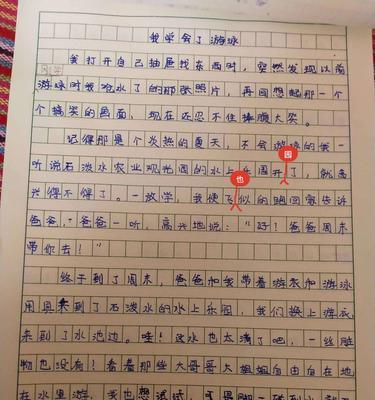 我学会了游泳
我打开自己抽屉找东西时，突然发现以前
游泳时我呛水了的那张照片，再回想起那一个
个搞笑的画面，现在还忍不住捧腹大笑。
记得那是个炎热的夏天，不会游泳的我一
听说石泼水农业观光园的水上乐园开了，就高
园
兴得不得了。一放学，我便飞似的跑回家告诉
也
爸爸，爸爸一听，高兴地说：“好！爸爸周末
带你去！”
终于到了周末，爸爸和我带着游衣和游泳
用具来到了石泼水的水上乐园，我们换上游衣
来到了水池边。哇！这水也太清了吧，一丝脏
物也没有！看着那些大哥哥大姐姐自由自在地
在水里游，我也想试试，